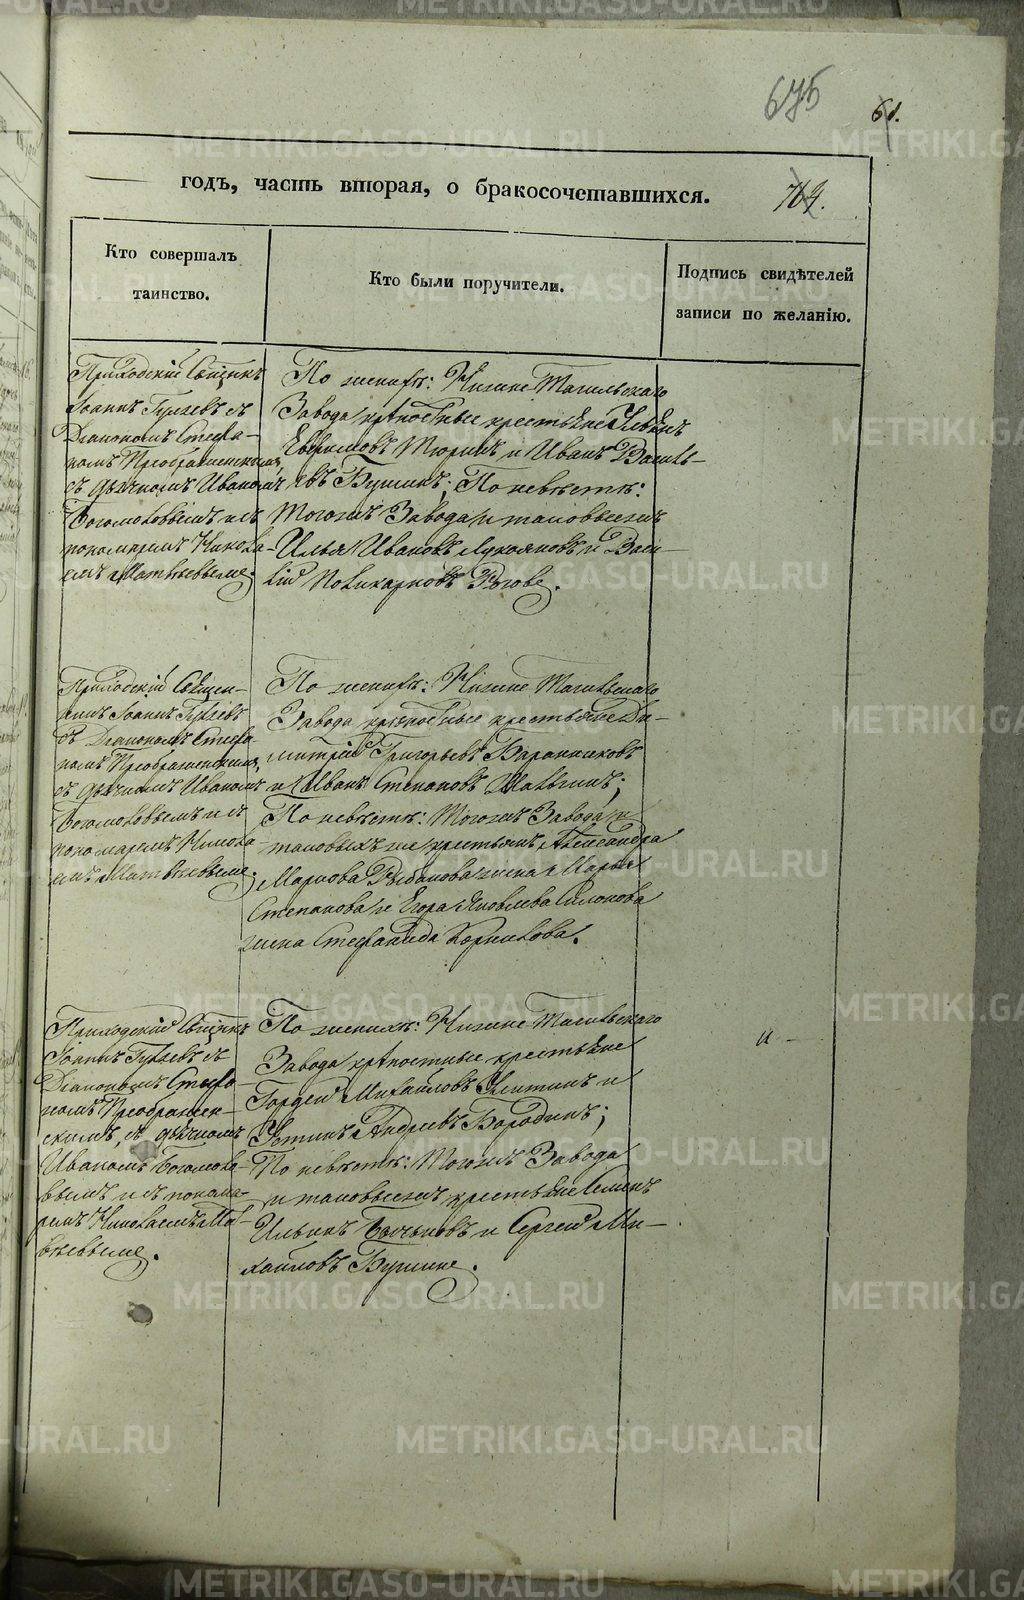 675
61.
годъ, часть вторая, о бракосочетавшихся.
769.
Кто совершалъ
таинство.
Кто были поручители.
Подпись свидѣтелей
записи по желанію.
Приходскій Свщнкъ
Іоаннъ Гуляевъ съ
Діакономъ Стефа-
номъ Преображенскимъ,
съ дьячкомъ Иваномъ
Богомоловымъ и съ
пономаремъ Никола-
емъ Матвѣевымъ.
По женихѣ: Нижне Тагильскаго
Завода крѣпостные крестьяне
Евфимовъ Тюринъ и Иванъ Василь-
евъ Бушинъ; По невѣстѣ:
тогожъ Завода и таковыежъ
Илья Ивановъ Лукояновъ и Васи-
лій Поликарповъ Рогове.
Приходскій Священ-
никъ Іоаннъ Гуляевъ
съ Діакономъ Стефа-
номъ Преображенскимъ,
съ дьячкомъ Иваномъ
Богомоловымъ и съ
пономаремъ Никола-
емъ Матвѣевымъ.
По женихѣ: Нижне Тагильскаго
Завода крѣпостные крестьяне Ди-
митрій Григорьевъ Баранниковъ
и Иванъ Степановъ Шалгинъ;
По невѣстѣ: тогожъ Завода и
таковыхъ же крестьянъ Александра
Маркова Рыбакова жена Марья
Степанова и Егора Яковлева
жена Стефанида Корнилова.
Приходскій Свщнкъ
Іоаннъ Гуляевъ съ
Діакономъ Стефа-
номъ Преображен-
скимъ, съ дьячкомъ
Иваномъ Богомоло-
вымъ и съ понома-
ремъ Николаемъ Мат-
вѣевымъ.
По женихѣ: Нижне Тагильскаго
Завода крѣпостные крестьяне
Гордей Михайловъ Улитинъ и
Устинъ Андреевъ Бородинъ;
По невѣстѣ: тогожъ Завода
и таковыежъ крестьяне Семенъ
Ильинъ и Сергей Ми-
хайловъ Бушине.
METRIKI.GASO-URAL.RU